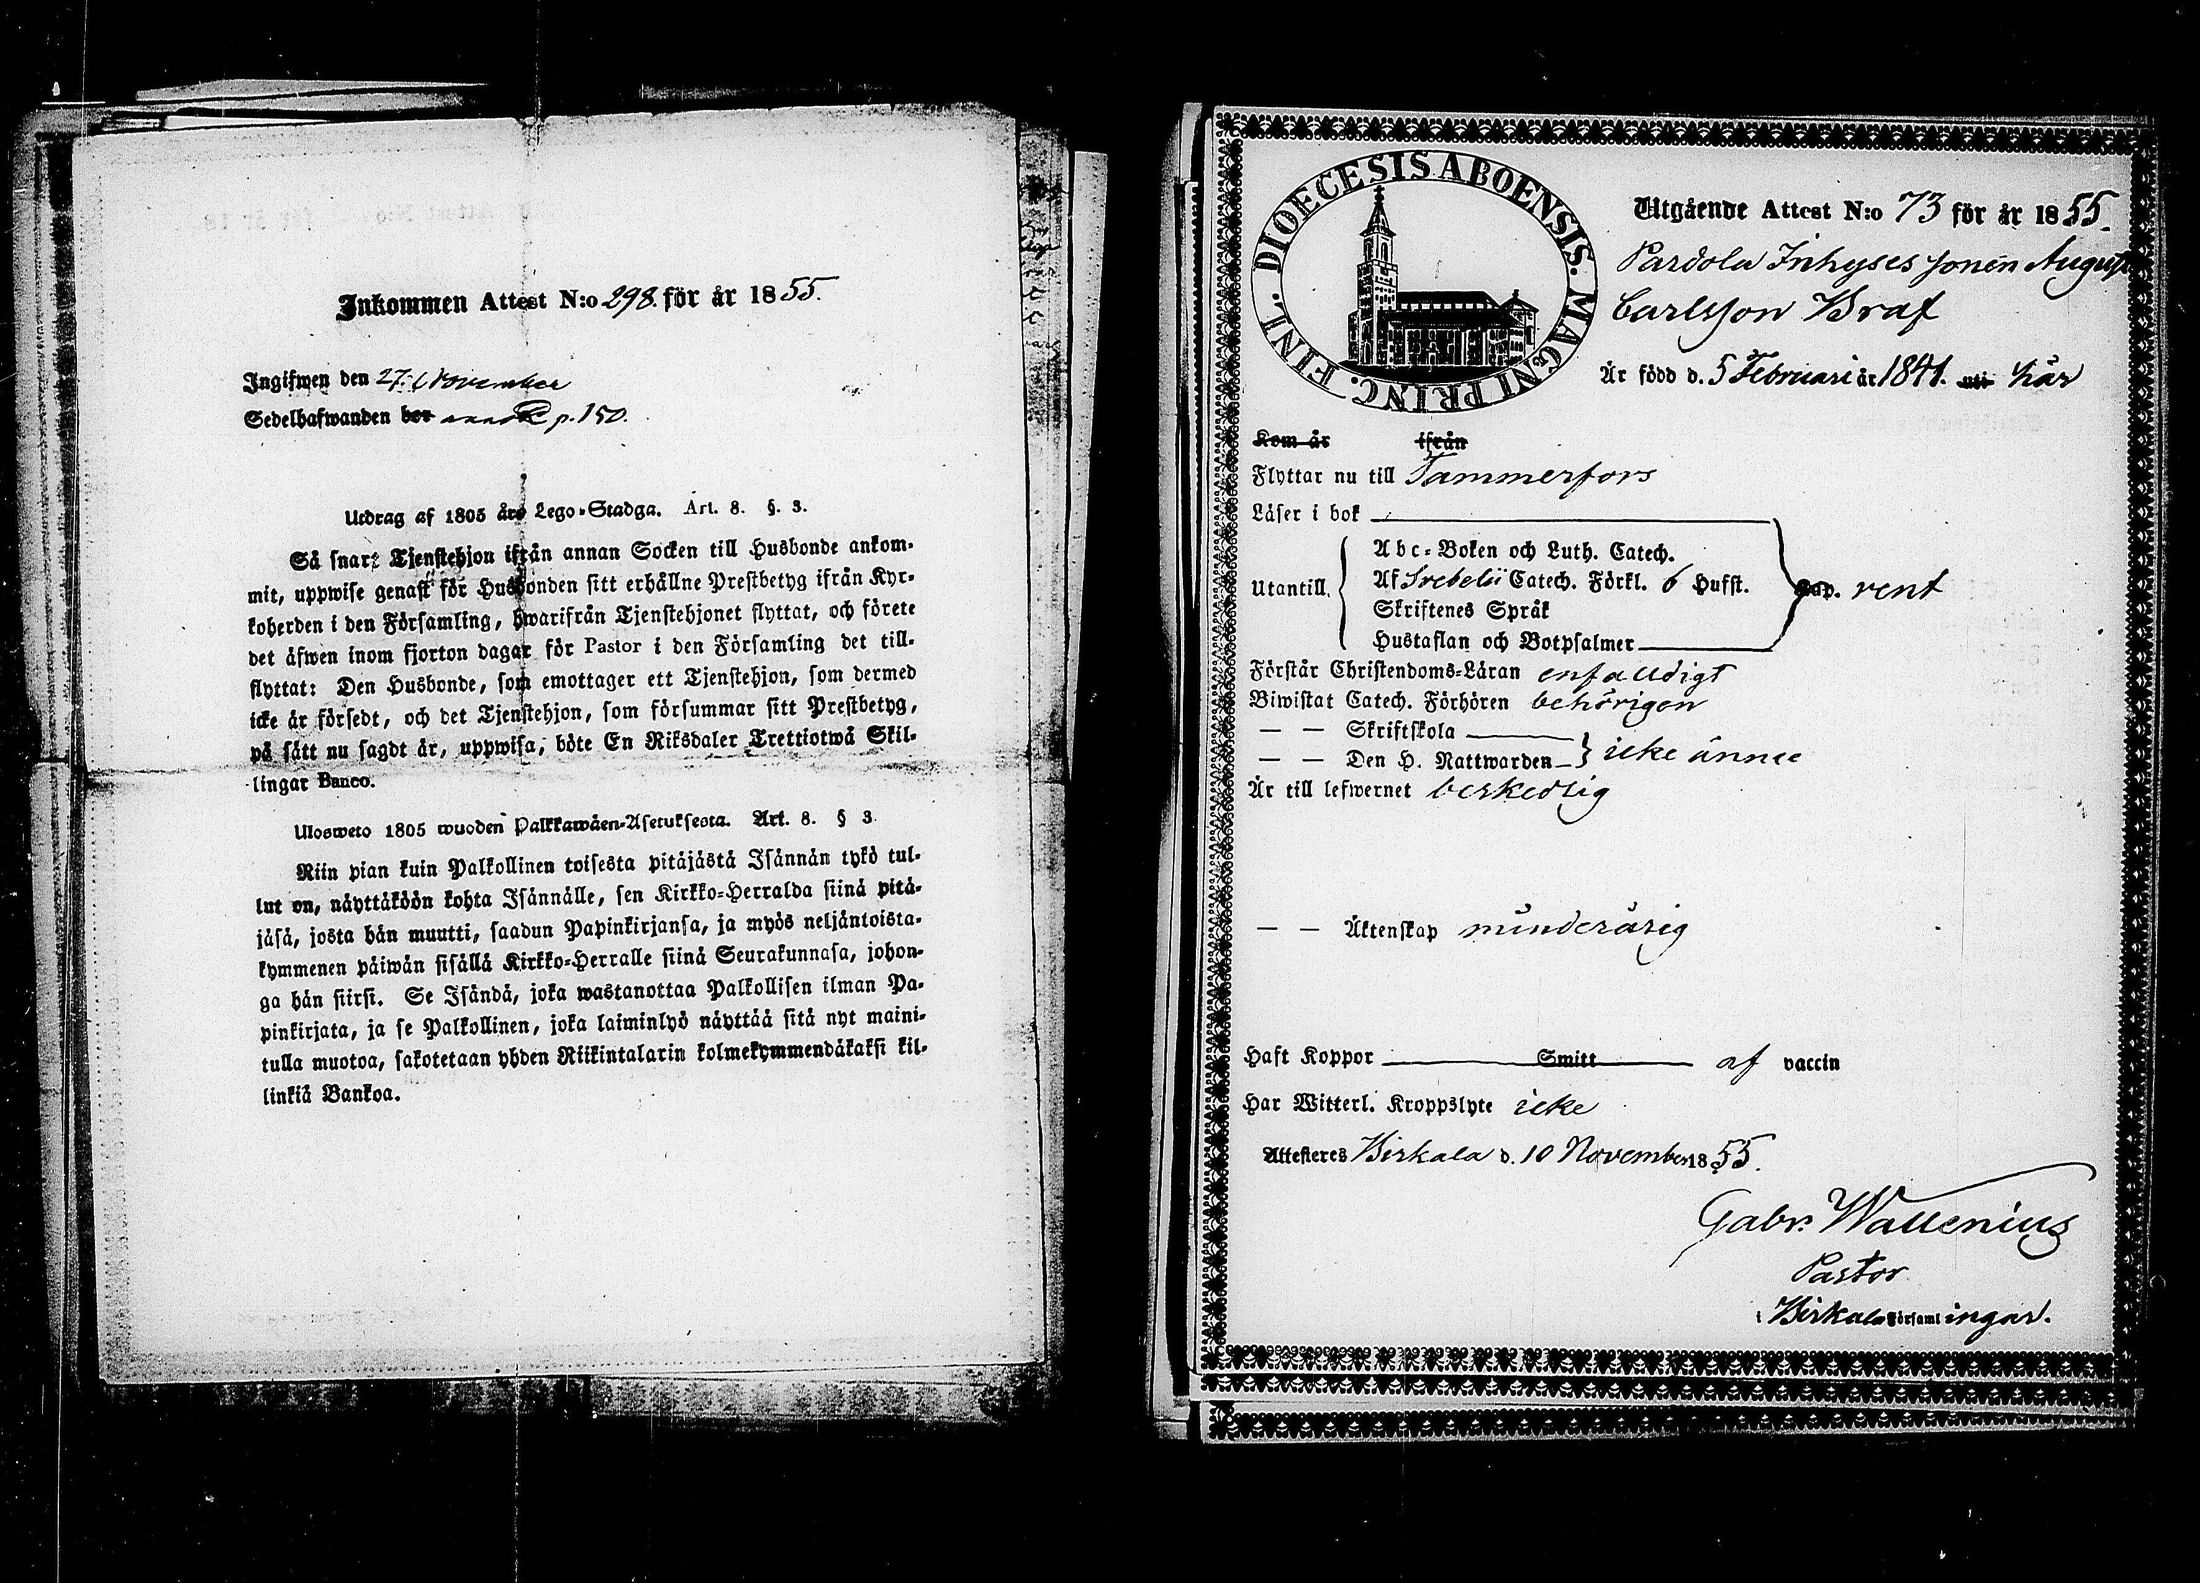 Inkommen Attest N:o 298. för år 1855.
Ingifwen den 27. November
Sedelhafwanden bor p. 150.
Utdrag af 1805 års Lego-Stadga. Art. 8. §. 3.
Så snart Tjenstehjon ifrån annan Socken till Husbonde ankom-
mit, uppwise genast för Husbonden sitt erhållne Prestbetyg ifrån Kyr-
koherden i den Församling, hwarifrån Tjenstehjonet flyttat, och förete
det äfwen inom fjorton dagar för Pastor i den Församling det till-
flyttat: Den Husbonde, som emottager ett Tjenstehjon, som dermed
icke är försedt, och det Tjenstehjon, som försummar sitt Prestbetyg,
på sätt nu sagdt är, uppwisa, böte En Riksdaler Trettiotwå Skil-
lingar Banco.
Ulosweto 1805 wuoden Palkkawäen-Asetuksesta. Art. 8. § 3.
Niin pian kuin Palkollinen toisesta pitäjästä Isännän tykö tul-
lut on, näyttäköön kohta Isännälle, sen Kirkko-Herralda siinä pitä-
jäsä, josta hän muutti, saadun Papinkirjansa, ja myös neljäntoista-
kymmenen päiwän sisällä Kirkko-Herralle siinä Seurakunnasa, johon-
ga hän siirsi. Se Isändä, joka wastanottaa Palkollisen ilman Pa-
pinkirjata, ja se Palkollinen, joka laiminlyö näyttää sitä nyt maini-
tulla muotoa, sakotetaan yhden Riikintalarin kolmekymmendäkaksi kil-
linkiä Bankoa.
DIOECESIS ABOENSIS. MAGNI PRINC. FINL.
Utgående Attest N:o 73 för år 1855.
Pardola Inhyses sonen August
Carlsson Braf
Är född d. 5 Februari år 1841. uti här
Kom år ifrån
Flyttar nu till Tammerfors
Läser i bok
Utantill. Abc-Boken och Luth. Catech.
Af Svebelii Catech. Förkl. 6 Hufst. Cap. rent
Skriftenes Språk
Hustaflan och Botpsalmer
Förstår Christendoms-Läran enfalldigt
Biwistat Catech. Förhören behörigen
— — Skriftskola
— — Den H. Nattwarden icke ännu
Är till lefwernet beskedlig
— — Äktenskap minderårig
Haft Koppor Smitt af vaccin
Har Witterl. Kroppslyte icke
Attesteres Birkala d. 10 November 1855.
Gabr. Wallenius
Pastor
i Birkala Församlingar.